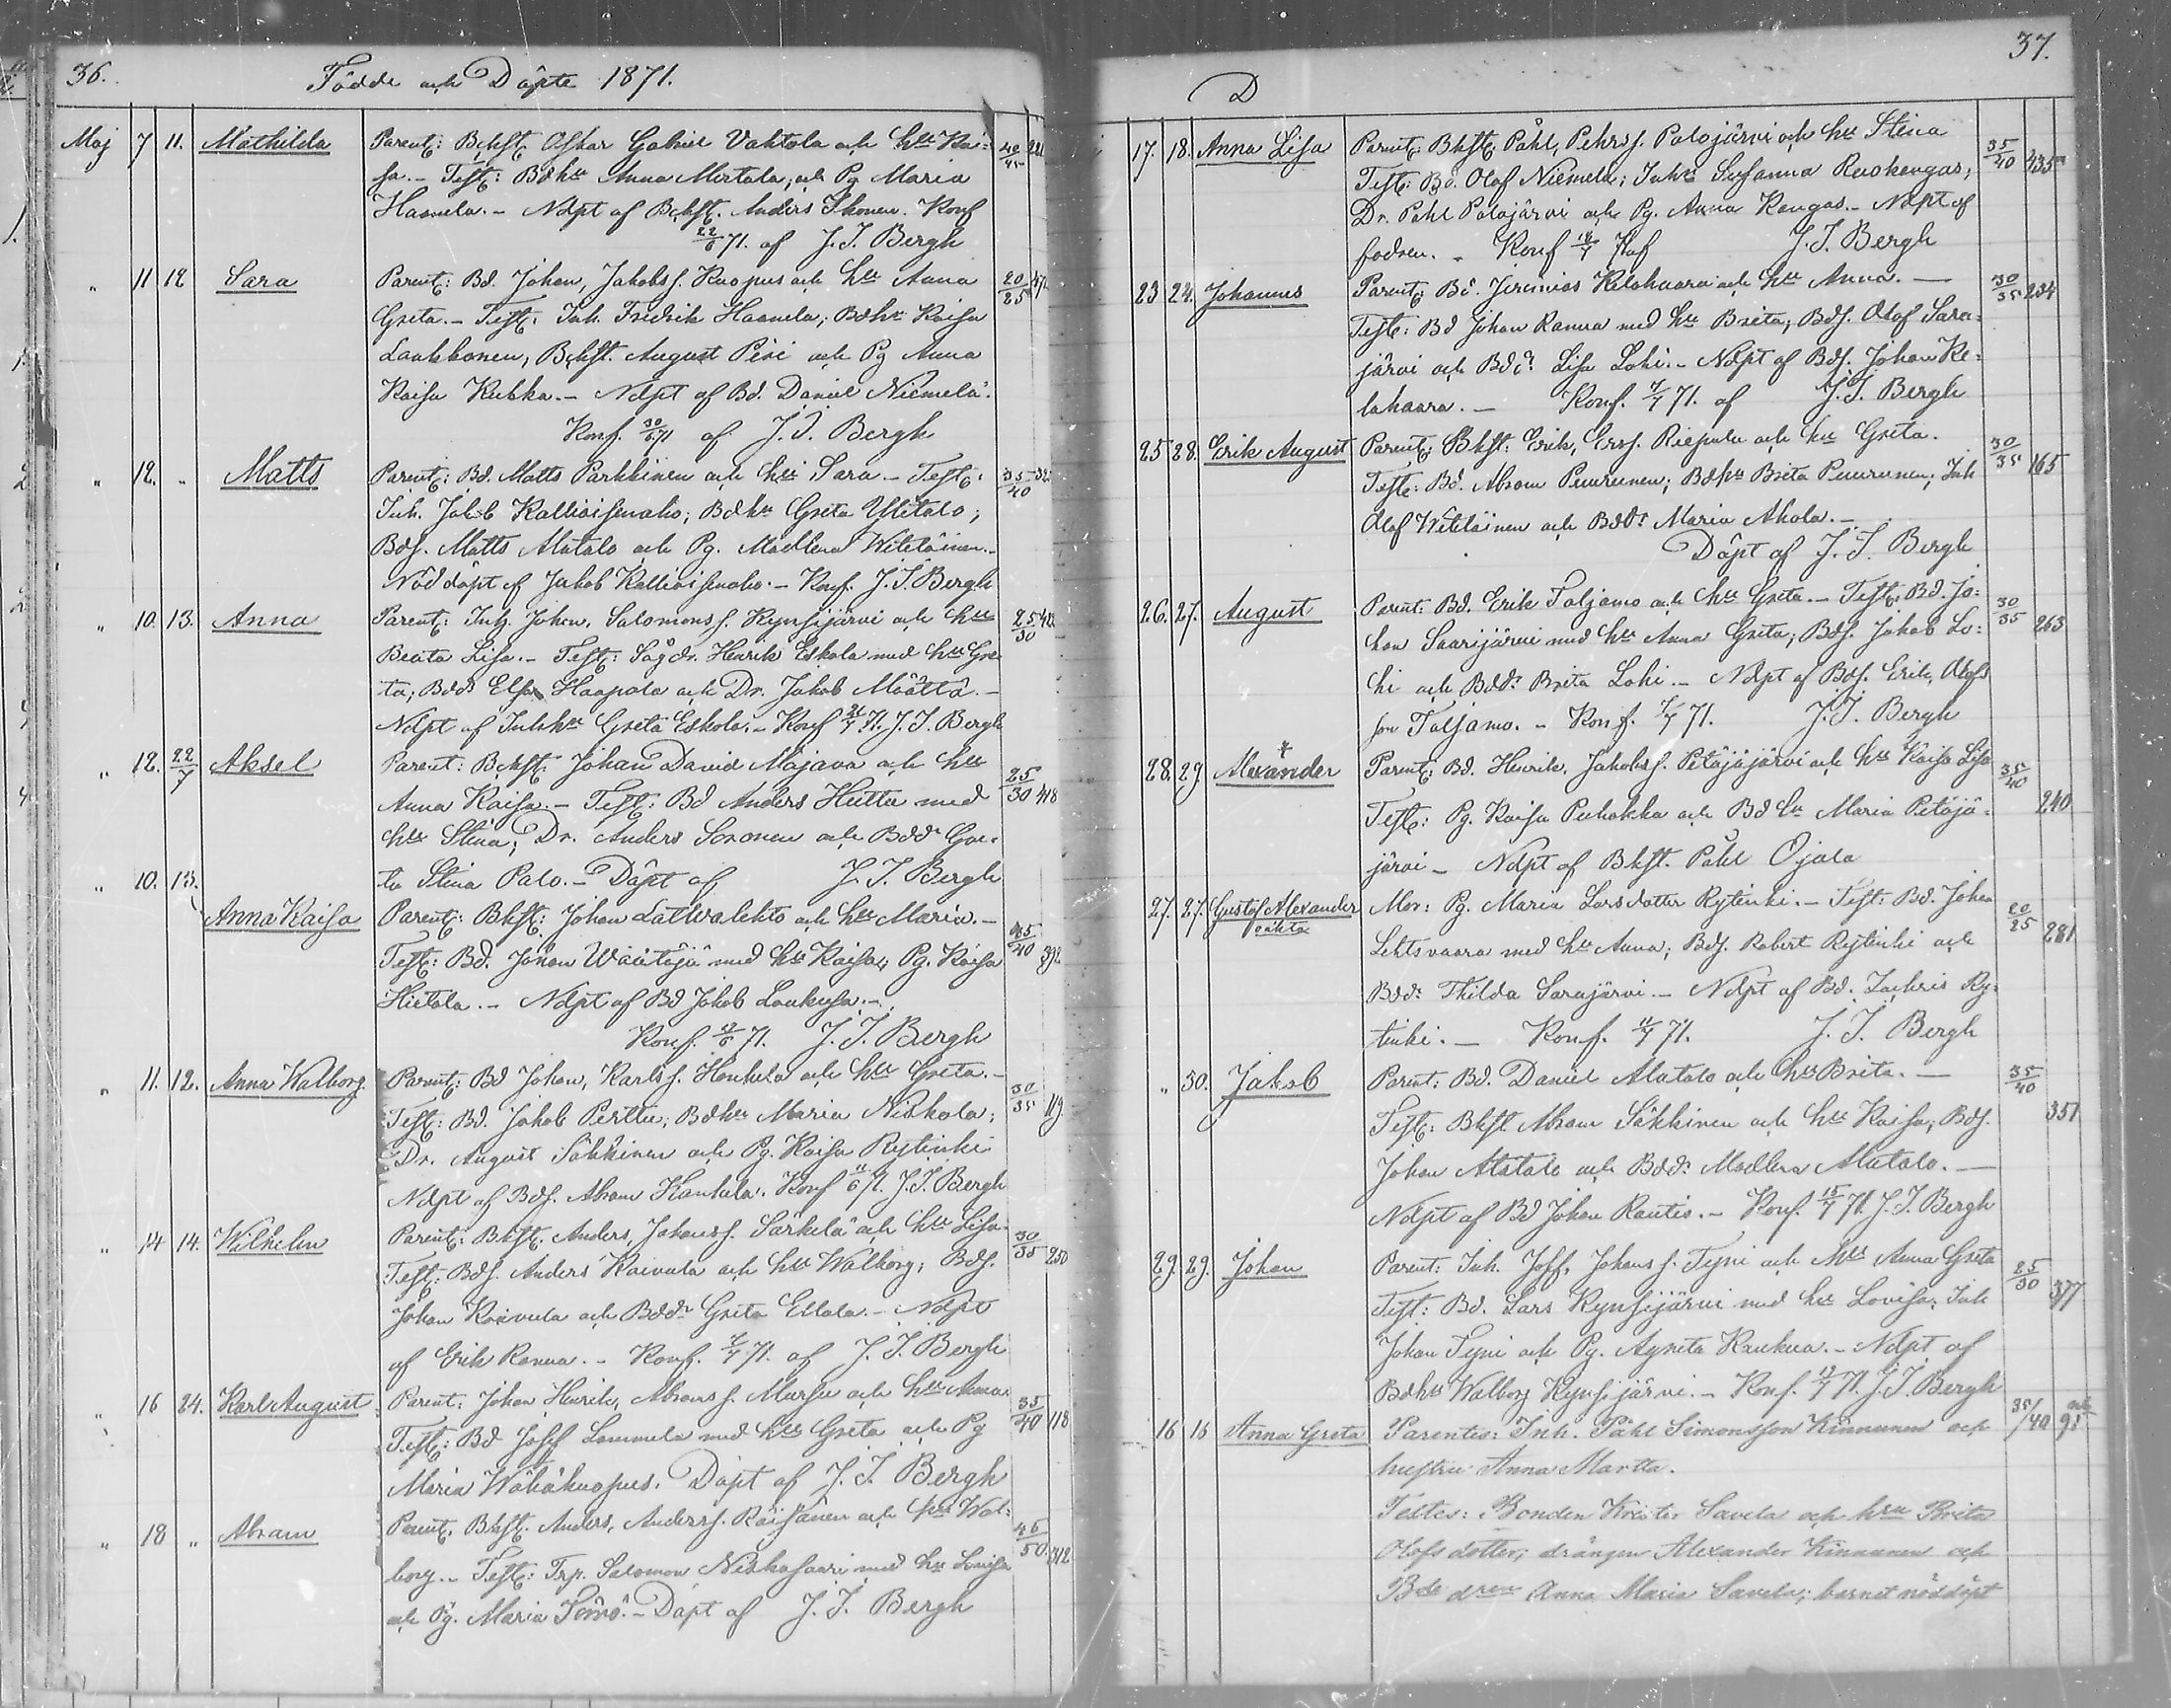 36.
Födde och Döpte 1871.
Maj 7 11. Mathilda Parent: Bchft. Oskar Gabriel Vahtola och hu Kai-
sa. - Test: Bdhu Anna Mertala, och Pg Maria
Haanela. - Ndpt af Bchft. Anders Ihonen. Konf
22/6 71. af J. I. Bergh
" 11 12 Sara Parent: Bd. Johan, Jakobss. Kuopus och hu Anna 20/25
Greta. - Test: Inh. Fredrik Haanela; Bdhu Kaisa
Laakkonen, Bchft. August Piri och Pg Anna
Kaisa Kukka. - Ndpt af Bd. Daniel Niemelä.
Konf. 30/6 71 af J. I. Bergh
" 12. " Matts Parent: Bd. Matts Parkkinen och hu Sara - Test: 35/40
Inh. Jakob Kallioisenaho; Bdhu Greta Ylitalo;
Bds. Matts Alatalo och Pg. Madlena Wililäinen. -
Nöddöpt af Jakob Kallioisenaho. - Konf. J. I. Bergh
" 10. 13. Anna Parent: Inh. Johan, Salomonss. Kynsijärvi och hu 25/30
Beata Lisa. - Test: Sågdr. Henrik Eskola med hu Gre-
ta; Bddr Elsa Haapala och Dr. Jakob Määttä. -
Ndpt af Inhhu Greta Eskola. - Konf 71. J. I. Bergh
" 12. 22/7 Aksel Parent: Bchft. Johan David Majava och hu 25/30 418
Anna Kaisa. - Test: Bd Anders Hiltu med
hu Stina; Dr. Anders Soronen och Bddr Gre-
ta Stina Palo. - Döpt af J. I. Bergh
" 10. 13. Anna Kaisa Parent: Bhft: Johan Latvalehto och hu Maria. - 35/40 392
Test: Bd. Johan Wäätäjä med hu Kaisa, Pg. Kaisa
Hietala. - Ndpt af Bd Jakob Laukusa. -
Konf. 71. J. I. Bergh
" 11. 12. Anna Walborg Parent: Bd Johan, Karlss. Honkela och hu Greta. - 30/35 119
Test: Bd. Jakob Perttu; Bdhu Maria Niskala;
Dr. August Säkkinen och Pg. Kaisa Rytinki
Ndpt af Bds. Abram Kantala. Konf 11/6 71. J. I. Bergh
" 14 14. Wilhelm Parent: Bhft. Anders, Johanss. Särkelä och hu Lisa- 30/35 250
Test: Bds. Anders Raivula och hu Walborg; Bds.
Johan Koivula och Bddr Greta Ellala. - Ndpt
af Erik Ranua. - Konf. 71. af J. I. Bergh
" 16 24. Karl August Parent: Johan Henrik, Abramss. Mursu och hu Anna 35/40 118
Test: Bd Josef Lommula med hu Greta och Pg
Maria Wähäkuopus. Döpt af J. I. Bergh
" 18 " Abram Parent: Bhft. Anders, Anderss. Räisänen och hu Wal- 45/50 312
borg. - Test: Trp. Salomon Niskasaari med hu Lovisa
och Pg. Maria Törmö. - Döpt af J. I. Bergh
37.
D
17. 18. Anna Lisa Parent: Bhft. Påhl, Pehrss. Palojärvi och hu Stina 35/40 435
Test: Bd. Olof Niemelä; Inhu Susanna Ruokangas;
Dr. Påhl Palojärvi och Pg. Anna Kangas. - Ndpt af
fadren. - Konf af J. I. Bergh
23 24. Johannes Parent: Bd. Jeremias Kelahaara och hu Anna. - 30/35 234
Test: Bd Johan Ranua med hu Brita; Bds. Olof Sara-
järvi och Bddr Lisa Lohi. - Ndpt af Bds. Johan Ke-
lahaara. - Konf. 71. af J. I. Bergh
25 28. Erik August Parent: Bhft: Erik, Erss. Riepula och hu Greta. 30/35 165
Test: Bd. Abram Puurunen; Bdhu Brita Puurunen; Inh
Olof Wililäinen och Bddr Maria Ahola. -
Döpt af J. I. Bergh
26. 27. August Parent: Bd. Erik Taljamo och hu Greta. - Test: Bd. Jo- 30/35 263
han Saarijärvi med hu Anna Greta; Bds. Jakob Lo-
hi och Bddr Brita Lohi. - Ndpt af Bds. Erik, Olofs
son Taljamo. - Konf. 71. J. I. Bergh
28. 29 Alexander Parent: Bd. Henrik, Jakobss. Petäjäjärvi och hu Kaisa Lisa 35/40 240
Test: Pg. Kaisa Puhakka och Bd hu Maria Petäjä-
järvi - Ndpt af Bhft. Påhl Ojala
27. 27. Gustaf Alexander oäkta Mor: Pg. Maria Larsdotter Rytinki. - Test: Bd. Johan 20/25 281
Lehtovaara med hu Anna; Bds. Robert Rytinki och
Bddr Thilda Sarajärvi. - Ndpt af Bd. Zachris Ry-
tinki. - Konf. 71. J. I. Bergh
" 30. Jakob Parent: Bd. Daniel Alatalo och hu Brita. - 35/40 351
Test: Bhft Abram Säkkinen och hu Kaisa; Bds.
Johan Alatalo och Bddr Madlena Alatalo. -
Ndpt af Bd Johan Rautio. - Konf. 15/7 71. J. I. Bergh
29. 29. Johan Parent: Inh. Josf, Johanss. Tyni och hu Anna Greta 25/30 377
Test: Bd. Lars Kynsijärvi med hu Lovisa; Inh
Johan Tyni och Pg. Agneta Kaukua. - Ndpt af
Bdhu Walborg Kynsijärvi. - Konf. 71. J. I. Bergh
16 16 Anna Greta Parentes: Inh. Påhl Simonsson Kinnunen och 35/40 98
hustru Anna Martta.
Testes: Bonden Krister Savela och hru Brita
Olofsdotter; drängen Alexander Kinnunen och
Bde dren Anna Maria Savela; barnet nöddöpt